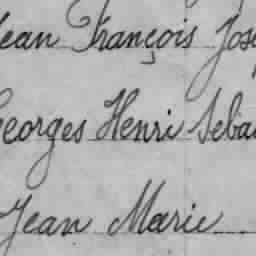 Jean François Jos
Georges Henri Seba
Jean Marie